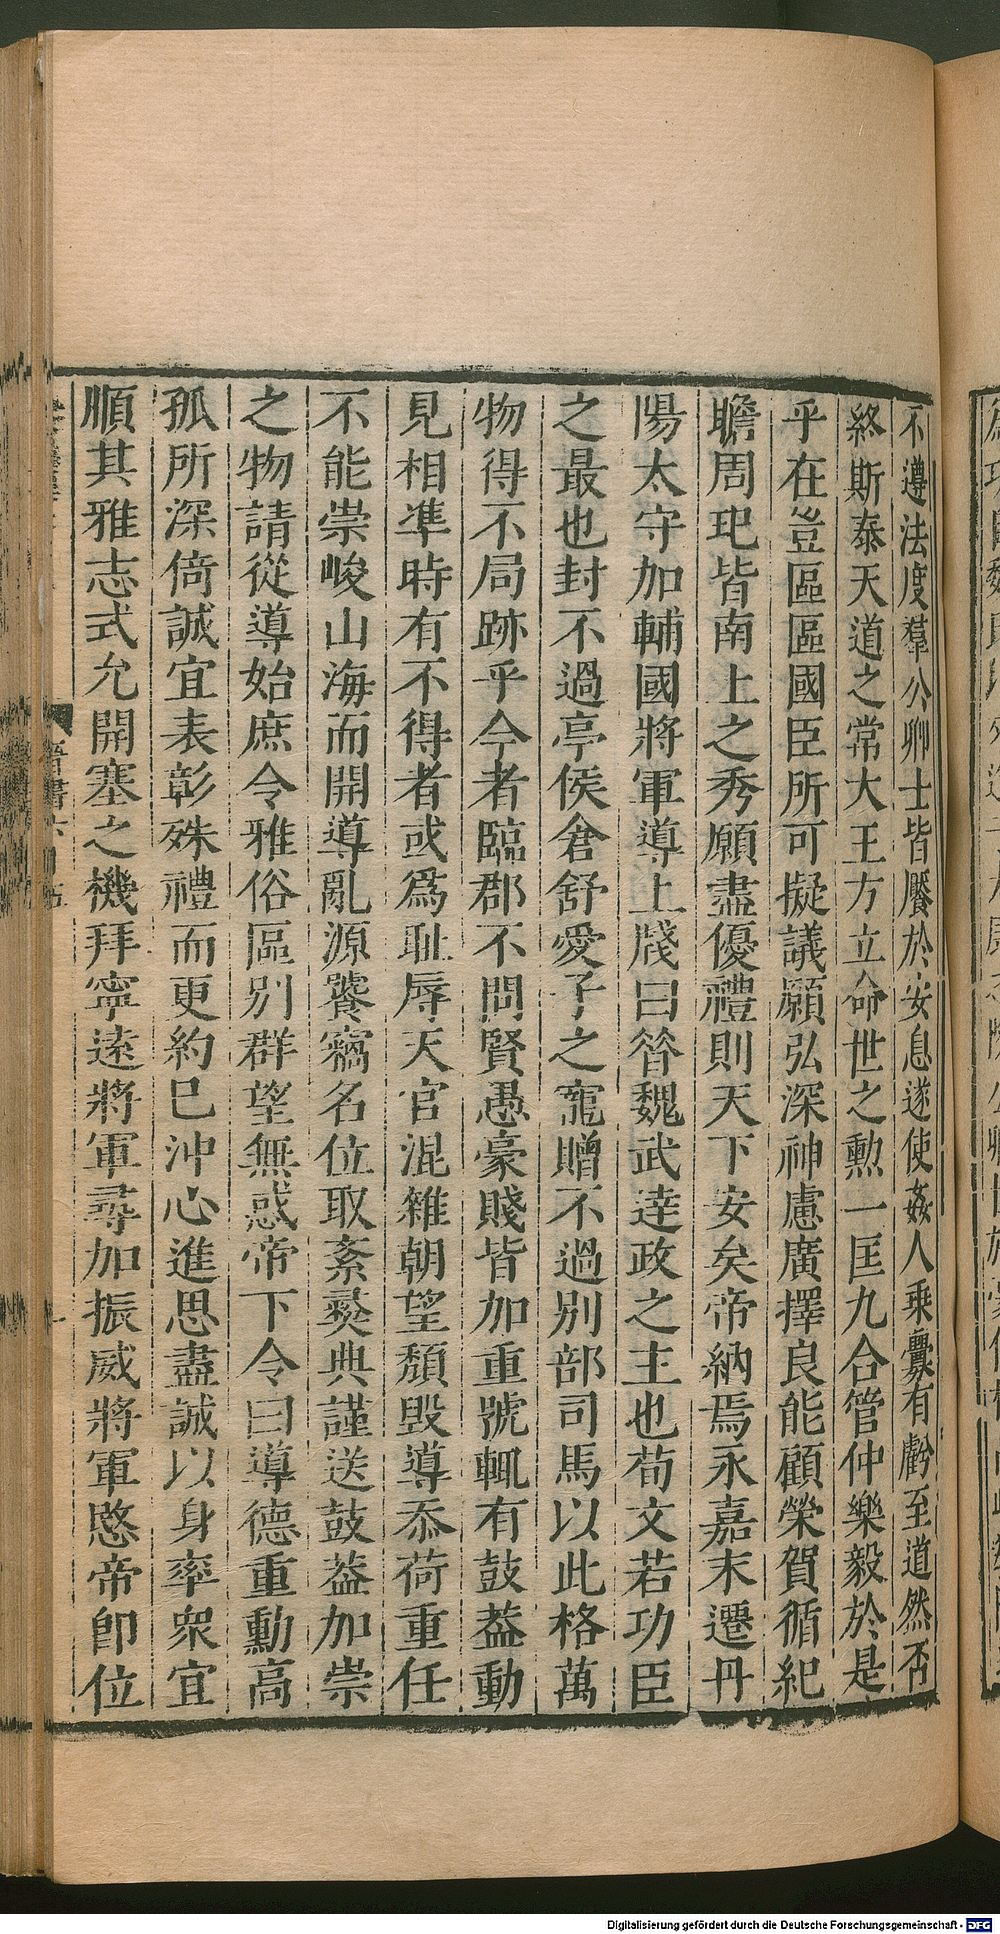 不遵法度羣公卿士皆饜於安息遂使姦人乗釁有虧至道然否
終斯泰天道之常大王方立命世之勲一匡九合管仲樂毅於是
乎在豈區區國臣所可擬議願弘深神慮廣擇良能顧榮賀循紀
瞻周玘皆南土之秀願盡優禮則天下安矣帝納焉永嘉末遷丹
陽太守加輔國將軍導上牋曰昝魏武逹政之主也荀文若功臣
之最也封不過亭侯倉舒愛子之寵贈不過别部司馬以此格萬
物得不局跡乎今者臨郡不問賢愚豪賤皆加重號輒有鼓葢動
見相凖時有不得者或爲耻辱天官混雜朝望頽毁導忝荷重任
不能崇峻山海而開導亂源饕竊名位取紊彛典謹送鼓葢加崇
之物請從導始庶令雅俗區别群望無惑帝下令曰導德重勳高
孤所深倚誠宜表彰殊禮而更約巳沖心進思盡誠以身率衆宜
順其雅志式允開塞之機拜寧遠將軍尋加振威將軍愍帝卽位
Digitalisierung gefördert durch die Deutsche Forschungsgemeinschaft - DFG